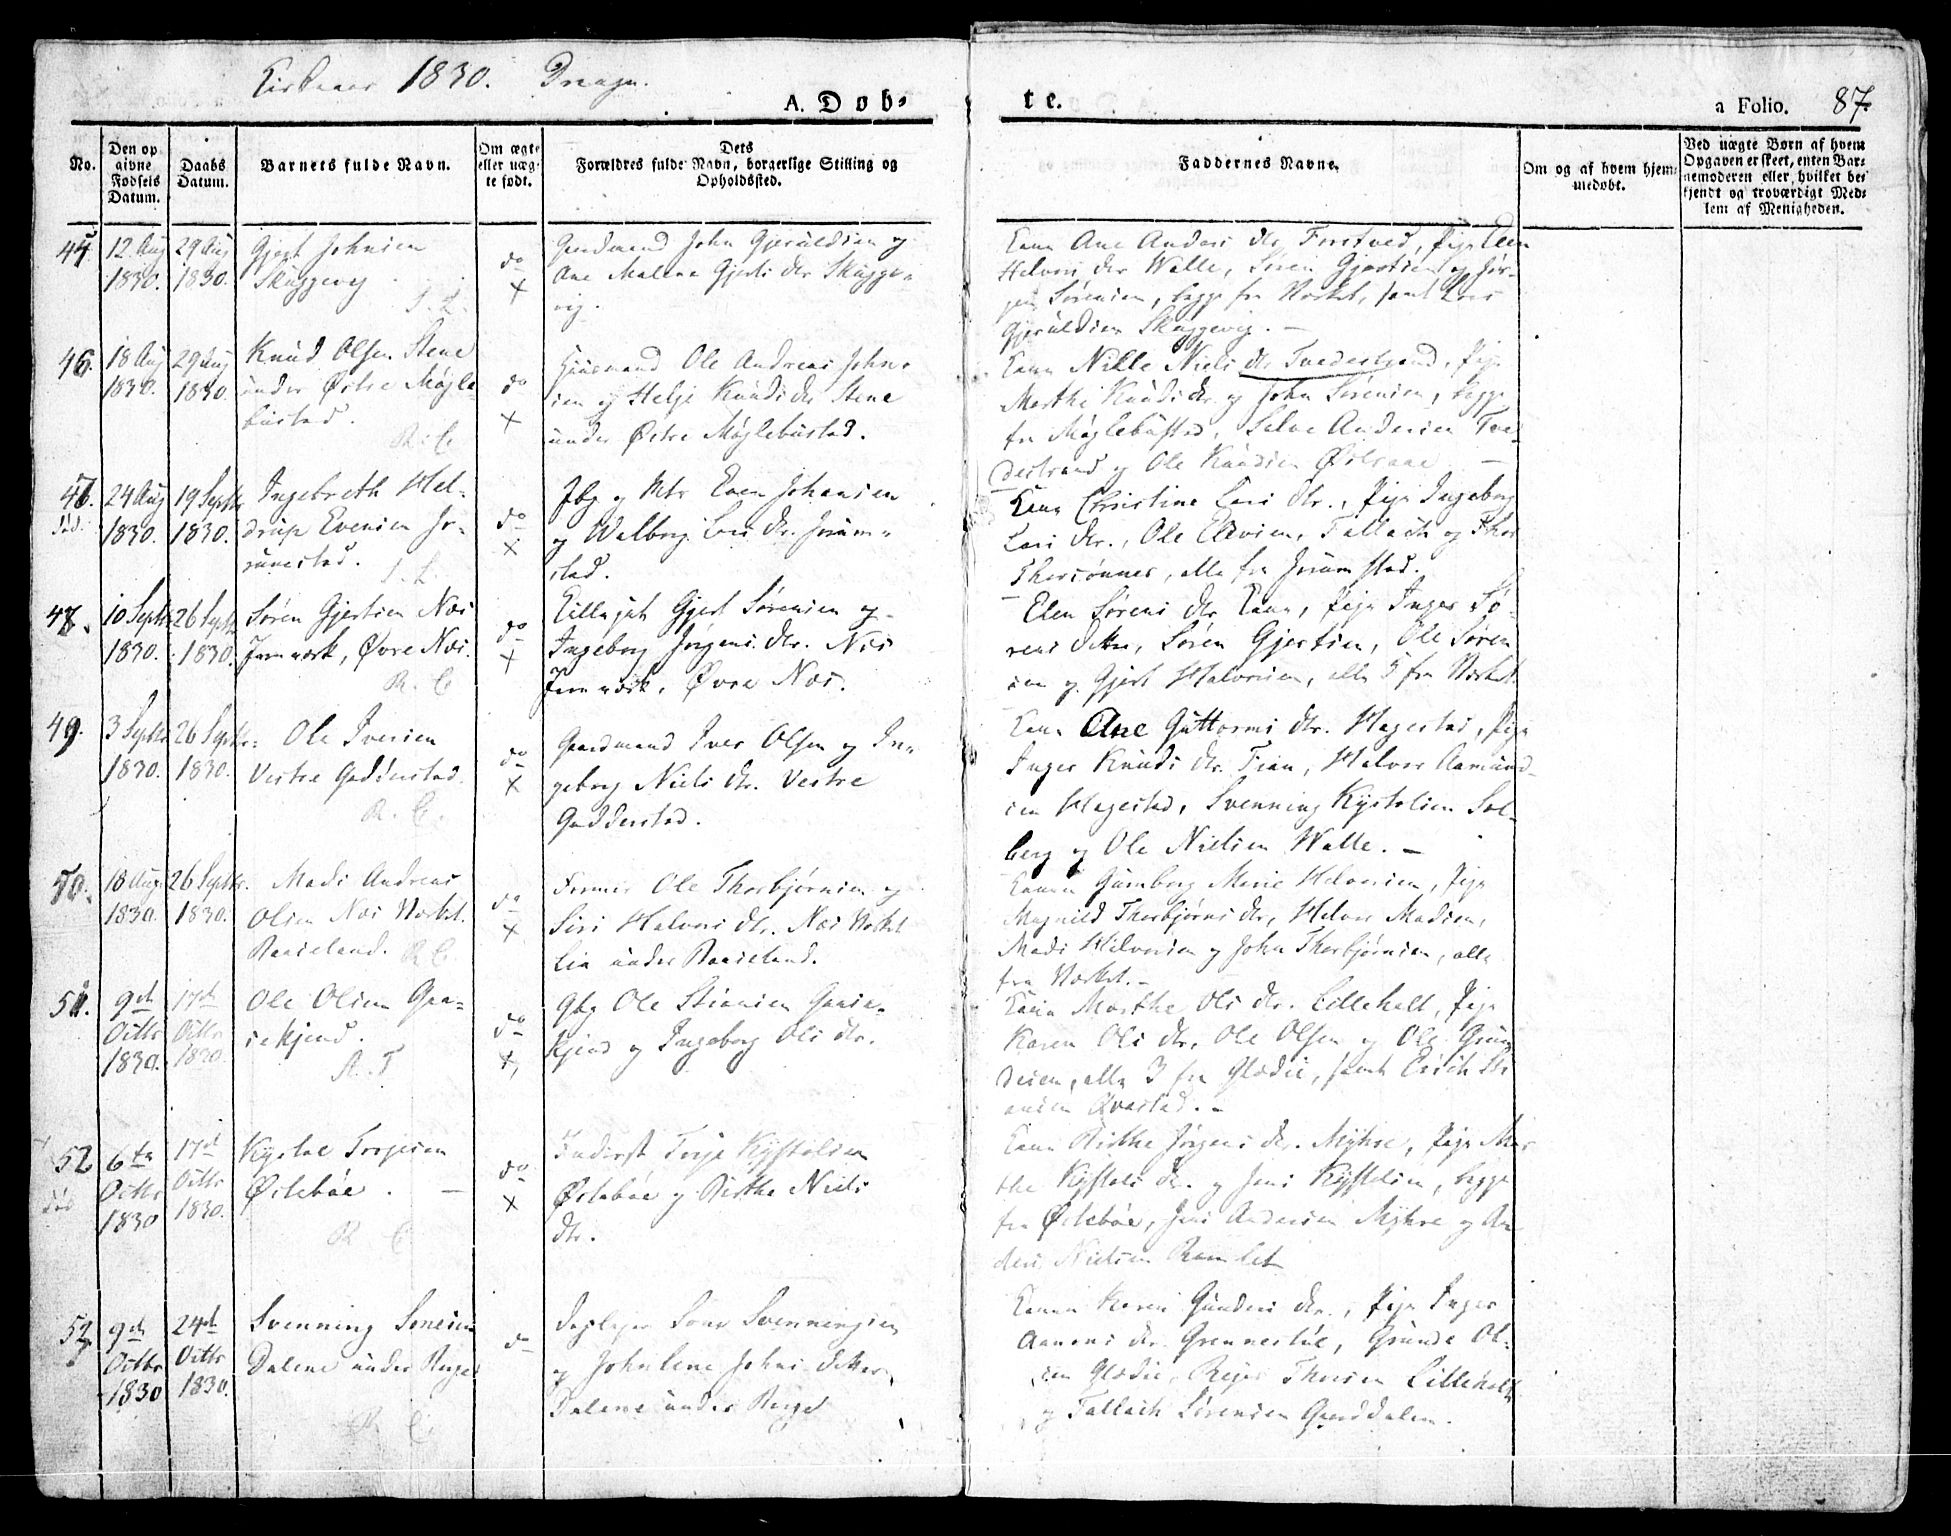 1830.
A. Døb-
te.
a Folio. 87.
No.
Den op
givne
Fødsels
Datum.
Daabs
Datum.
Barnets fulde Navn.
Om ægte
eller uæg-
te født.
Dets
Forældres fulde Navn, borgerlige Stilling og
Opholdssted.
Faddernes Navne.
Om og af hvem hjem-
medøbt.
Ved uægte Børn af hvem
Opgaven er skeet, enten Bar-
nemoderen eller, hvilket be-
kjendt og troværdigt Med-
lem af Menigheden.
12 Aug
1830.
29 Aug
1830.
Gjert Johnsen
Skuggevig
do
Gaardmand John Gjeruldsen og
Ane Malene Gjerts dtr Skugge-
vig.
Kone Ane Anders dtr Fosstved, Pige Elen
Halvors dtr Walle, Søren Gjertsen og Jør-
gen Sørensen, begge fra Værket, samt Lars
Gjeruldsen Skuggevig.
46.
18 Aug
1830.
29 Aug
1830.
Knud Olsen Stene
under Østre Møgle-
bustad.
R. C
do
Huusmand Ole Andreas John-
sen og Helje Knuds dtr Stene
under Østre Møglebustad.
Kone Nille Niels dtr Tvedestrand, Pige
Marthe Knuds dtr og John Sørensen, begge
fra Møglebustad, Salve Andersen Tve-
destrand og Ole Knudsen
47.
død.
24 Aug
1830.
19 Septbr
1830.
Ingebreth Hel-
drup Evensen Jo-
runstad.
do
og Mtr Even Johansen
og Walborg Lars dtr. Jorun-
stad.
Kone Christine Lars dtr., Pige Ingeborg
Lars dtr., Ole Elevsen, Tallach og Thor
Thorsønner, alle fra Jorunstad.
48.
10 Septbr
1830.
26 Septbr
1830.
Søren Gjertsen Næs
Jernværk, Øvre Næs.
R. C
do
Gjert Sørensen og
Ingeborg Jørgens dtr. Næs
Jernværk, Øvre Næs.
Elen Sørens dtr Kone, Pige Inger Sø-
rens datter, Søren Gjertsen, Ole Søren-
sen og Gjert Halvorsen, alle 5 fra Værket.
49.
3 Septbr
1830.
26 Septbr:
1830.
Ole Iversen
Vestre Goderstad.
R. C.
do
Gaardmand Iver Olsen og In-
geborg Niels dtr. Vestre
Godderstad.
Kone Ane Guttorms dtr. Hagestad, Pige
Inger Knuds dtr. Fian, Halvor Aamund-
sen Hagestad, Svenning Kystolsen Sol-
berg og Ole Nielsen Walle.
50.
18 Aug
1830.
26 Septbr.
1830.
Mads Andreas
Olsen Næs Værket.
Raaseland. R C.
do
Former Ole Thorbjørnsen og
Siri Halvors dtr. Næs Værket
Lia under Raaseland.
Konen Gunborg Marie Halvorsen, Pige
Magnild Thorbjørns dtr, Halvor Madsen,
Mads Halvorsen og John Thorbjørnsen, alle
fra Værket.
51.
9de
Octbr
1830.
17de
Octbr
1830.
Ole Olsen Gaa-
sekjend.
A. T
do
Gbg Ole Stiansen Gaase-
kjend og Ingeborg Ols dtr.
Kone Marthe Ols dtr. Lilleholt, Pige
Karen Ols dtr, Ole Olsen og Ole Gun-
dersen, alle 3 fra Glødse, samt Erich Sti-
ansen Qvastad.
52
død
6te
Octbr
1830
17de
Octbr
1830.
Kystol Torjesen
Østebøe.
R C
do
Inderst Torje Kystolsen
Østebøe og Birthe Niels
dtr.
Kone Birthe Jørgens dtr. Myhre, Pige Mar-
the Kystols dtr. og Jens Kystolsen, begge
fra Østebøe, Jens Andersen Myhre og An-
ders Nielsen Ramlet
53
9de
Octbr
1830
24de
Octbr
1830.
Svenning
Dalene under Berget
R C.
do
Svenningsen
og Johnlene Johns datter,
Dalene under Berget
Konen Karen Gunders dtr., Pige Inger
Aanons dtr. Grennestøl, Gunde Ol-
sen Glødse, Reier Thorsen Lilleholt
og Tallach Sørensen Gjerddalen.